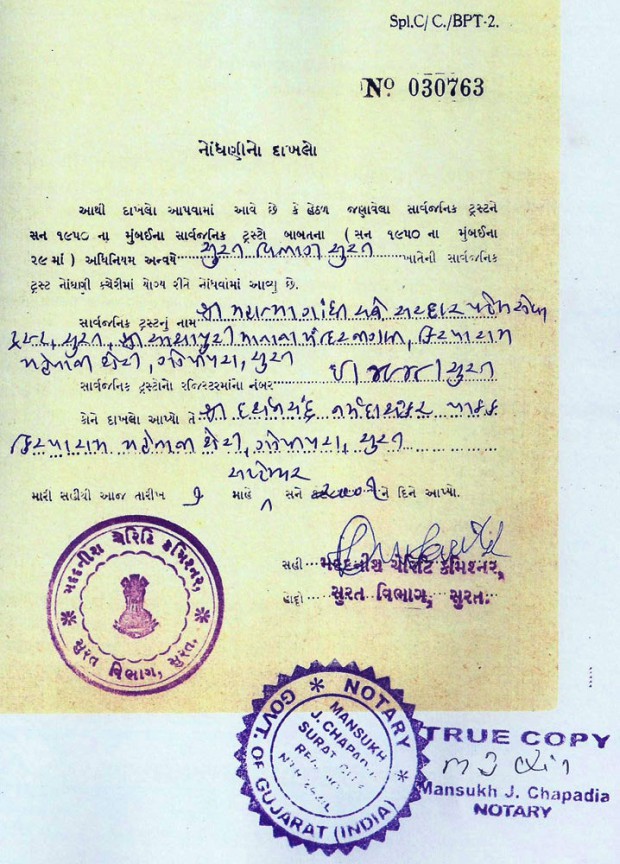 Spl.C/ C./BPT-2.
Nº 030763
નોંધણીનો દાખલો
આથી દાખલો આપવામાં આવે છે કે હેઠળ જણાવેલા સાર્વજનિક ટ્રસ્ટને
સન ૧૯૫૦ ના મુંબઈના સાર્વજનિક ટ્રસ્ટો બાબતના ( સન ૧૯૫૦ ના મુંબઈના
૨૯ માં ) અધિનિયમ અન્વયે સુરત વિભાગ સુરત ખાતેની સાર્વજનિક
ટ્રસ્ટ નોંધણી કચેરીમાં યોગ્ય રીતે નોંધવામાં આવ્યુ છે.
સાર્વજનિક ટ્રસ્ટનું નામ શ્રી મહાત્મા ગાંધી અને સરદાર પટેલ સેવા
ટ્રસ્ટ, સુરત, શ્રી આશાપુરી માતાના મંદિર
મહેતાની શેરી, ગોપીપુરા, સુરત
સાર્વજનિક ટ્રસ્ટોના રજિસ્ટરમાંના નંબર સુરત
કોને દાખલો આપ્યો તે શ્રી નર્મદાશંકર પાઠક
મહેતાની શેરી, ગોપીપુરા, સુરત
સપ્ટેમ્બર
મારી સહીથી આજ તારીખ માહે સને ને દિને આપ્યો.
સહી મદદનીશ ચેરિટી કમિશ્નર,
હોદ્દો સુરત વિભાગ, સુરત.
મદદનીશ ચેરિટિ કમિશ્નર,
સુરત વિભાગ, સુરત.
NOTARY
GOVT. OF GUJARAT (INDIA)
MANSUKH
J. CHAPADIA
SURAT
TRUE COPY
Mansukh J. Chapadia
NOTARY